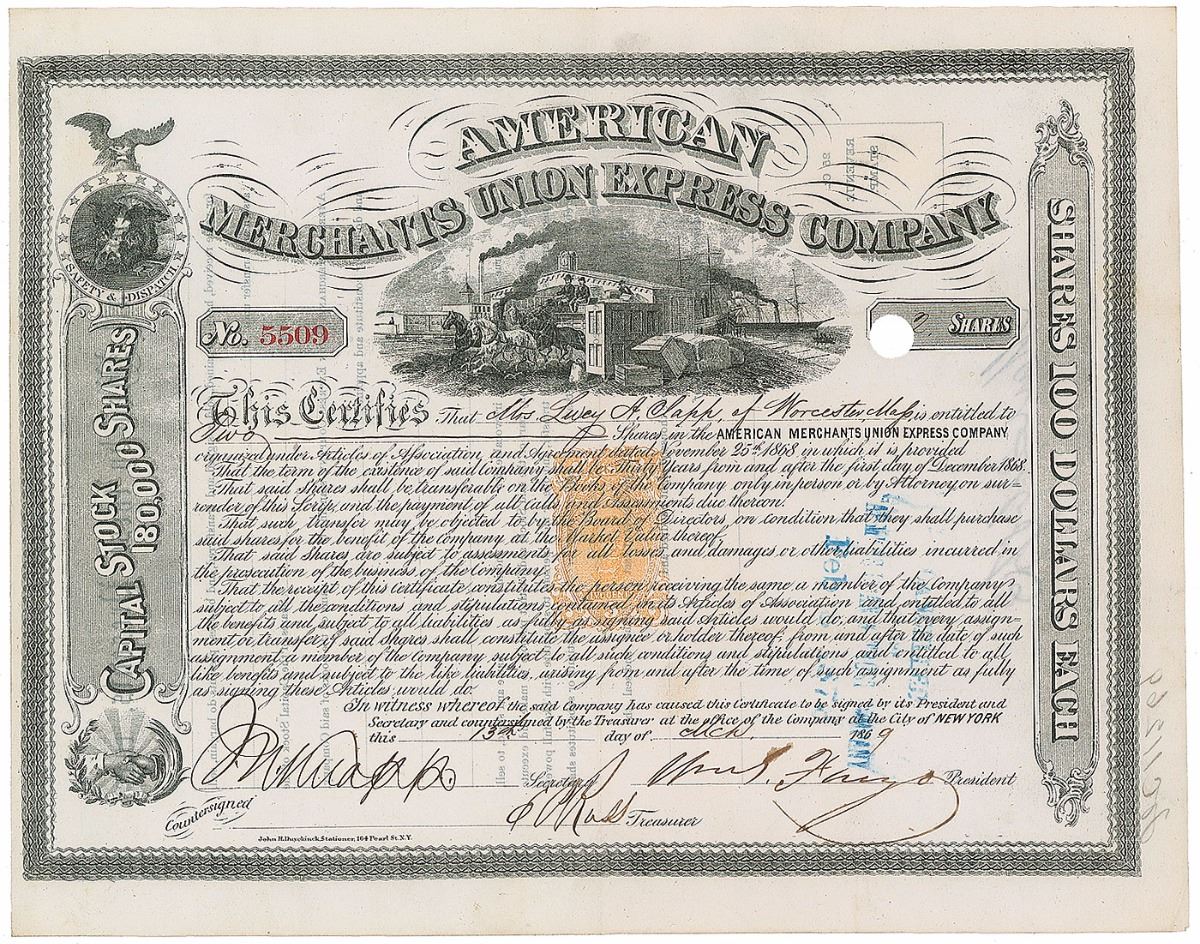 AMERICAN
MERCHANTS UNION EXPRESS COMPANY
SAFETY & DISPATCH
No. 5509
SHARES
CAPITAL STOCK 180,000 SHARES
SHARES 100 DOLLARS EACH
This Certifies That Mrs. Lucy A. Clapp, of Worcester, Mass is entitled to
Two Shares in the AMERICAN MERCHANTS UNION EXPRESS COMPANY
organized under Articles of Association, and Agreement dated November 25th 1868 in which it is provided
That the term of the existence of said Company shall be Thirty Years from and after the first day of December 1868.
That said Shares shall be transferable on the Books of the Company only in person or by Attorney, on sur-
render of this Scrip, and the payment of all Calls and Assessments due thereon.
That such transfer may be objected to by the Board of Directors, on condition that they shall purchase
said shares for the benefit of the Company at the Market Value thereof.
That said Shares are subject to assessments for all losses and damages or other liabilities incurred in
the prosecution of the business of the Company.
That the receipt of this Certificate constitutes the person receiving the same a member of the Company
subject to all the conditions and stipulations contained in its Articles of Association and entitled to all
the benefits and subject to all liabilities as fully as signing said Articles would do, and that every assign-
ment or transfer of said Shares shall constitute the assignee or holder thereof from and after the date of such
assignment, a member of the Company subject to all such conditions and stipulations and entitled to all
like benefits and subject to the like liabilities, arising from and after the time of such assignment as fully
as signing these Articles would do.
In witness whereof the said Company has caused this Certificate to be signed by its President and
Secretary and countersigned by the Treasurer at the office of the Company at the City of NEW YORK
this 13th day of Mch 1869
J. N. Knapp Secretary Wm G. Fargo President
Countersigned
Ross Treasurer
John H. Duyckinck, Stationer, 164 Pearl St. N.Y.